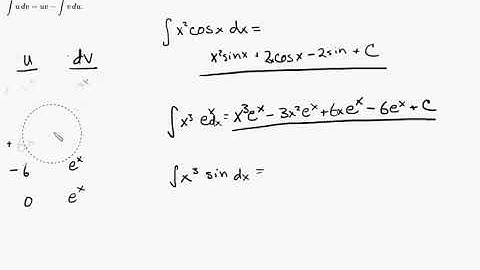 ∫ u dv = uv − ∫ v du.
∫ x² cos x dx =
x² sin x + 2x cos x − 2 sin + C
u dv
∫ x³ eˣ dx = x³eˣ − 3x²eˣ + 6xeˣ − 6eˣ + C
− 6 eˣ
0 eˣ
∫ x³ sin dx =